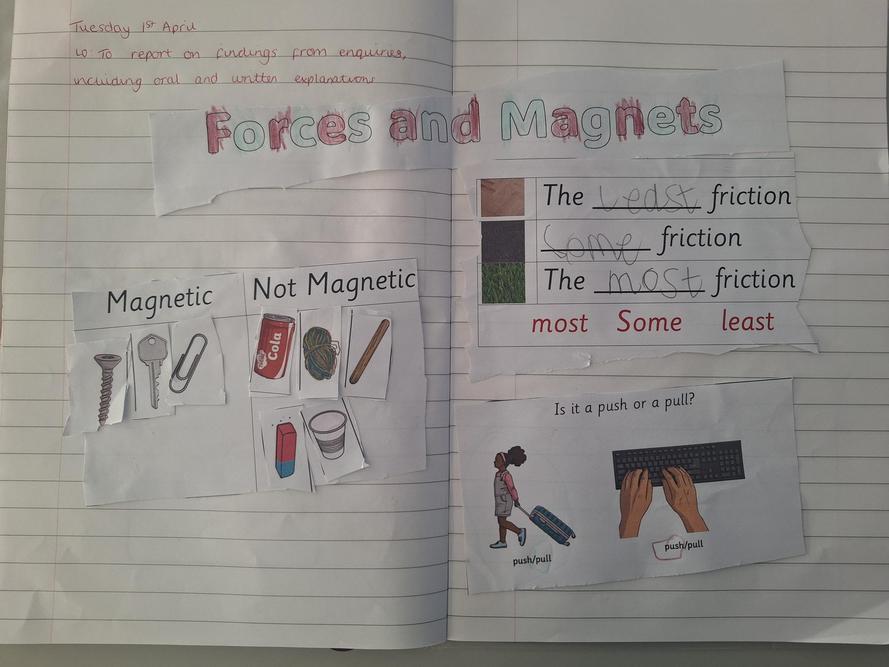 Tuesday 1st April
LO: To report on findings from enquiries,
including oral and written explanations
Forces and Magnets
Magnetic
Not Magnetic
Cola
The least friction
Some friction
The most friction
most Some least
Is it a push or a pull?
push/pull
push/pull